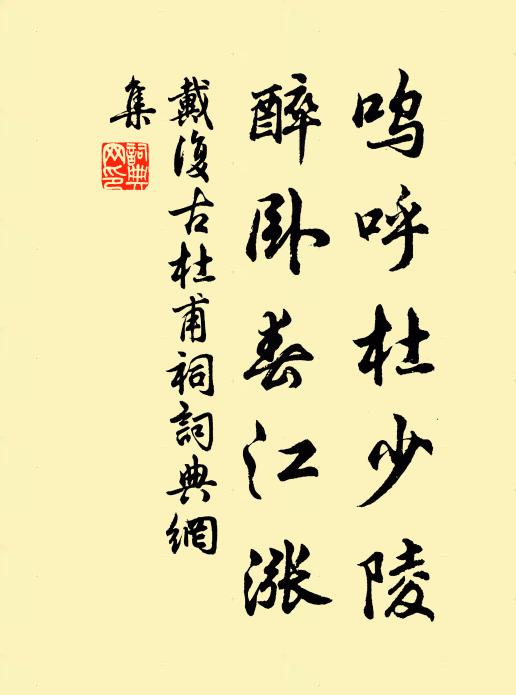 呜呼杜少陵
醉卧春江涨
戴復古杜甫祠詞典網
集
詞典網印